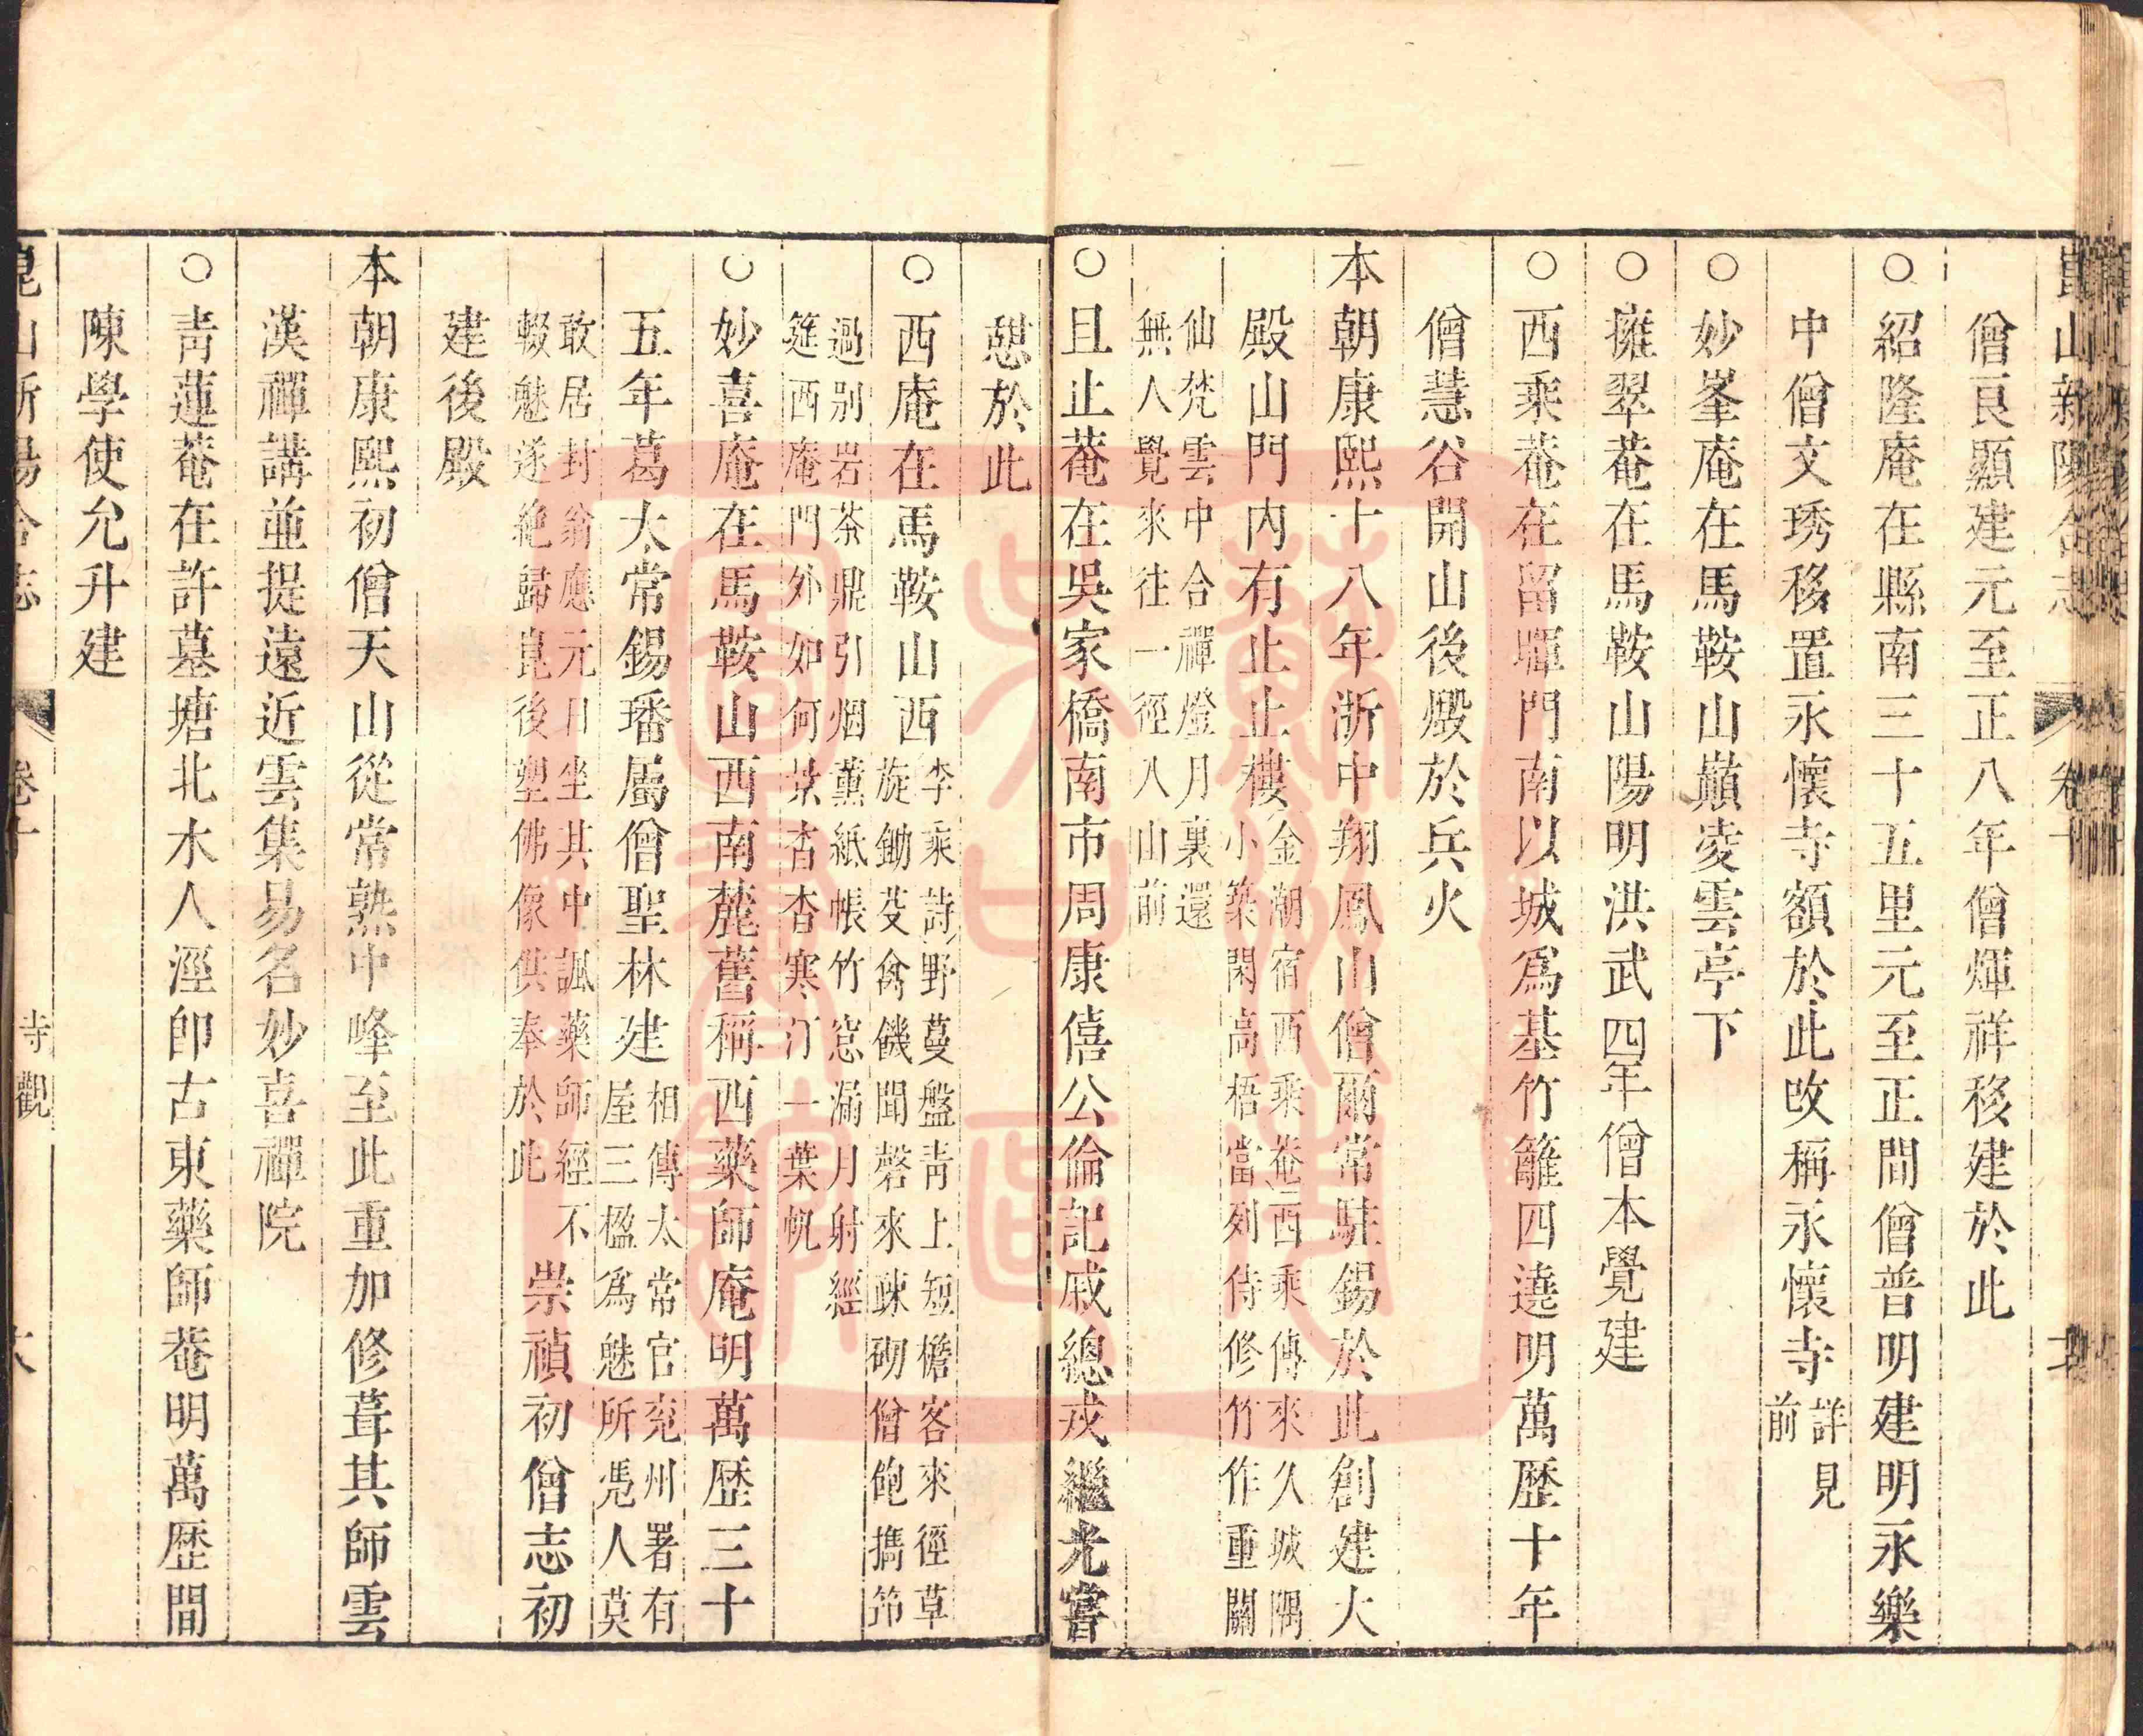 崑山新陽合志
卷十
僧良顯建元至正八年僧煇祥移建於此
○紹隆庵在縣南三十五里元至正間僧普明建明永樂
中僧文琇移置永懷寺額於此改稱永懷寺詳見
前
○妙峯庵在馬鞍山巔凌雲亭下
○擁翠菴在馬鞍山陽明洪武四年僧本覺建
○西乘菴在留暉門南以城爲基竹籬四遶明萬歴十年
僧慧谷開山後燬於兵火
本朝康熙十八年浙中翔鳳山僧爾常駐錫於此創建大
殿山門內有止止樓金潮宿西乘菴西乘傳來久城隅
小築閑高梧當列侍修竹作重關
仙梵雲中合禪燈月裏還
無人覺來往一徑入山前
○且止菴在吳家橋南市周康僖公倫記戚總戎繼光嘗
憩於此
○西庵在馬鞍山西李乘詩野蔓盤靑上短檐客來徑草
旋鋤芟禽饑聞磬來疎砌僧飽擕筇
過别岩茶鼎引烟薰紙帳竹窓漏月射經
筵西庵門外如何景杳杳寒汀一葉帆
○妙喜庵在馬鞍山西南麓舊稱西藥師庵明萬歴三十
五年葛太常錫璠屬僧聖林建相傳太常官兖州署有
屋三楹爲魅所凭人莫
敢居封翁應元日坐其中諷藥師經不
輟魅遂絶歸崑後塑佛像供奉於此
崇禎初僧志初
建後殿
本朝康熙初僧天山從常熟中峰至此重加修葺其師雲
漢禪講並提遠近雲集易名妙喜禪院
○靑蓮菴在許墓塘北木人涇卽古東藥師菴明萬歴間
陳學使允升建
崑山新陽合志
卷十
寺觀